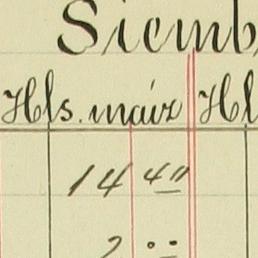 Siemb
Hls. maiz Hl
14 4"
2